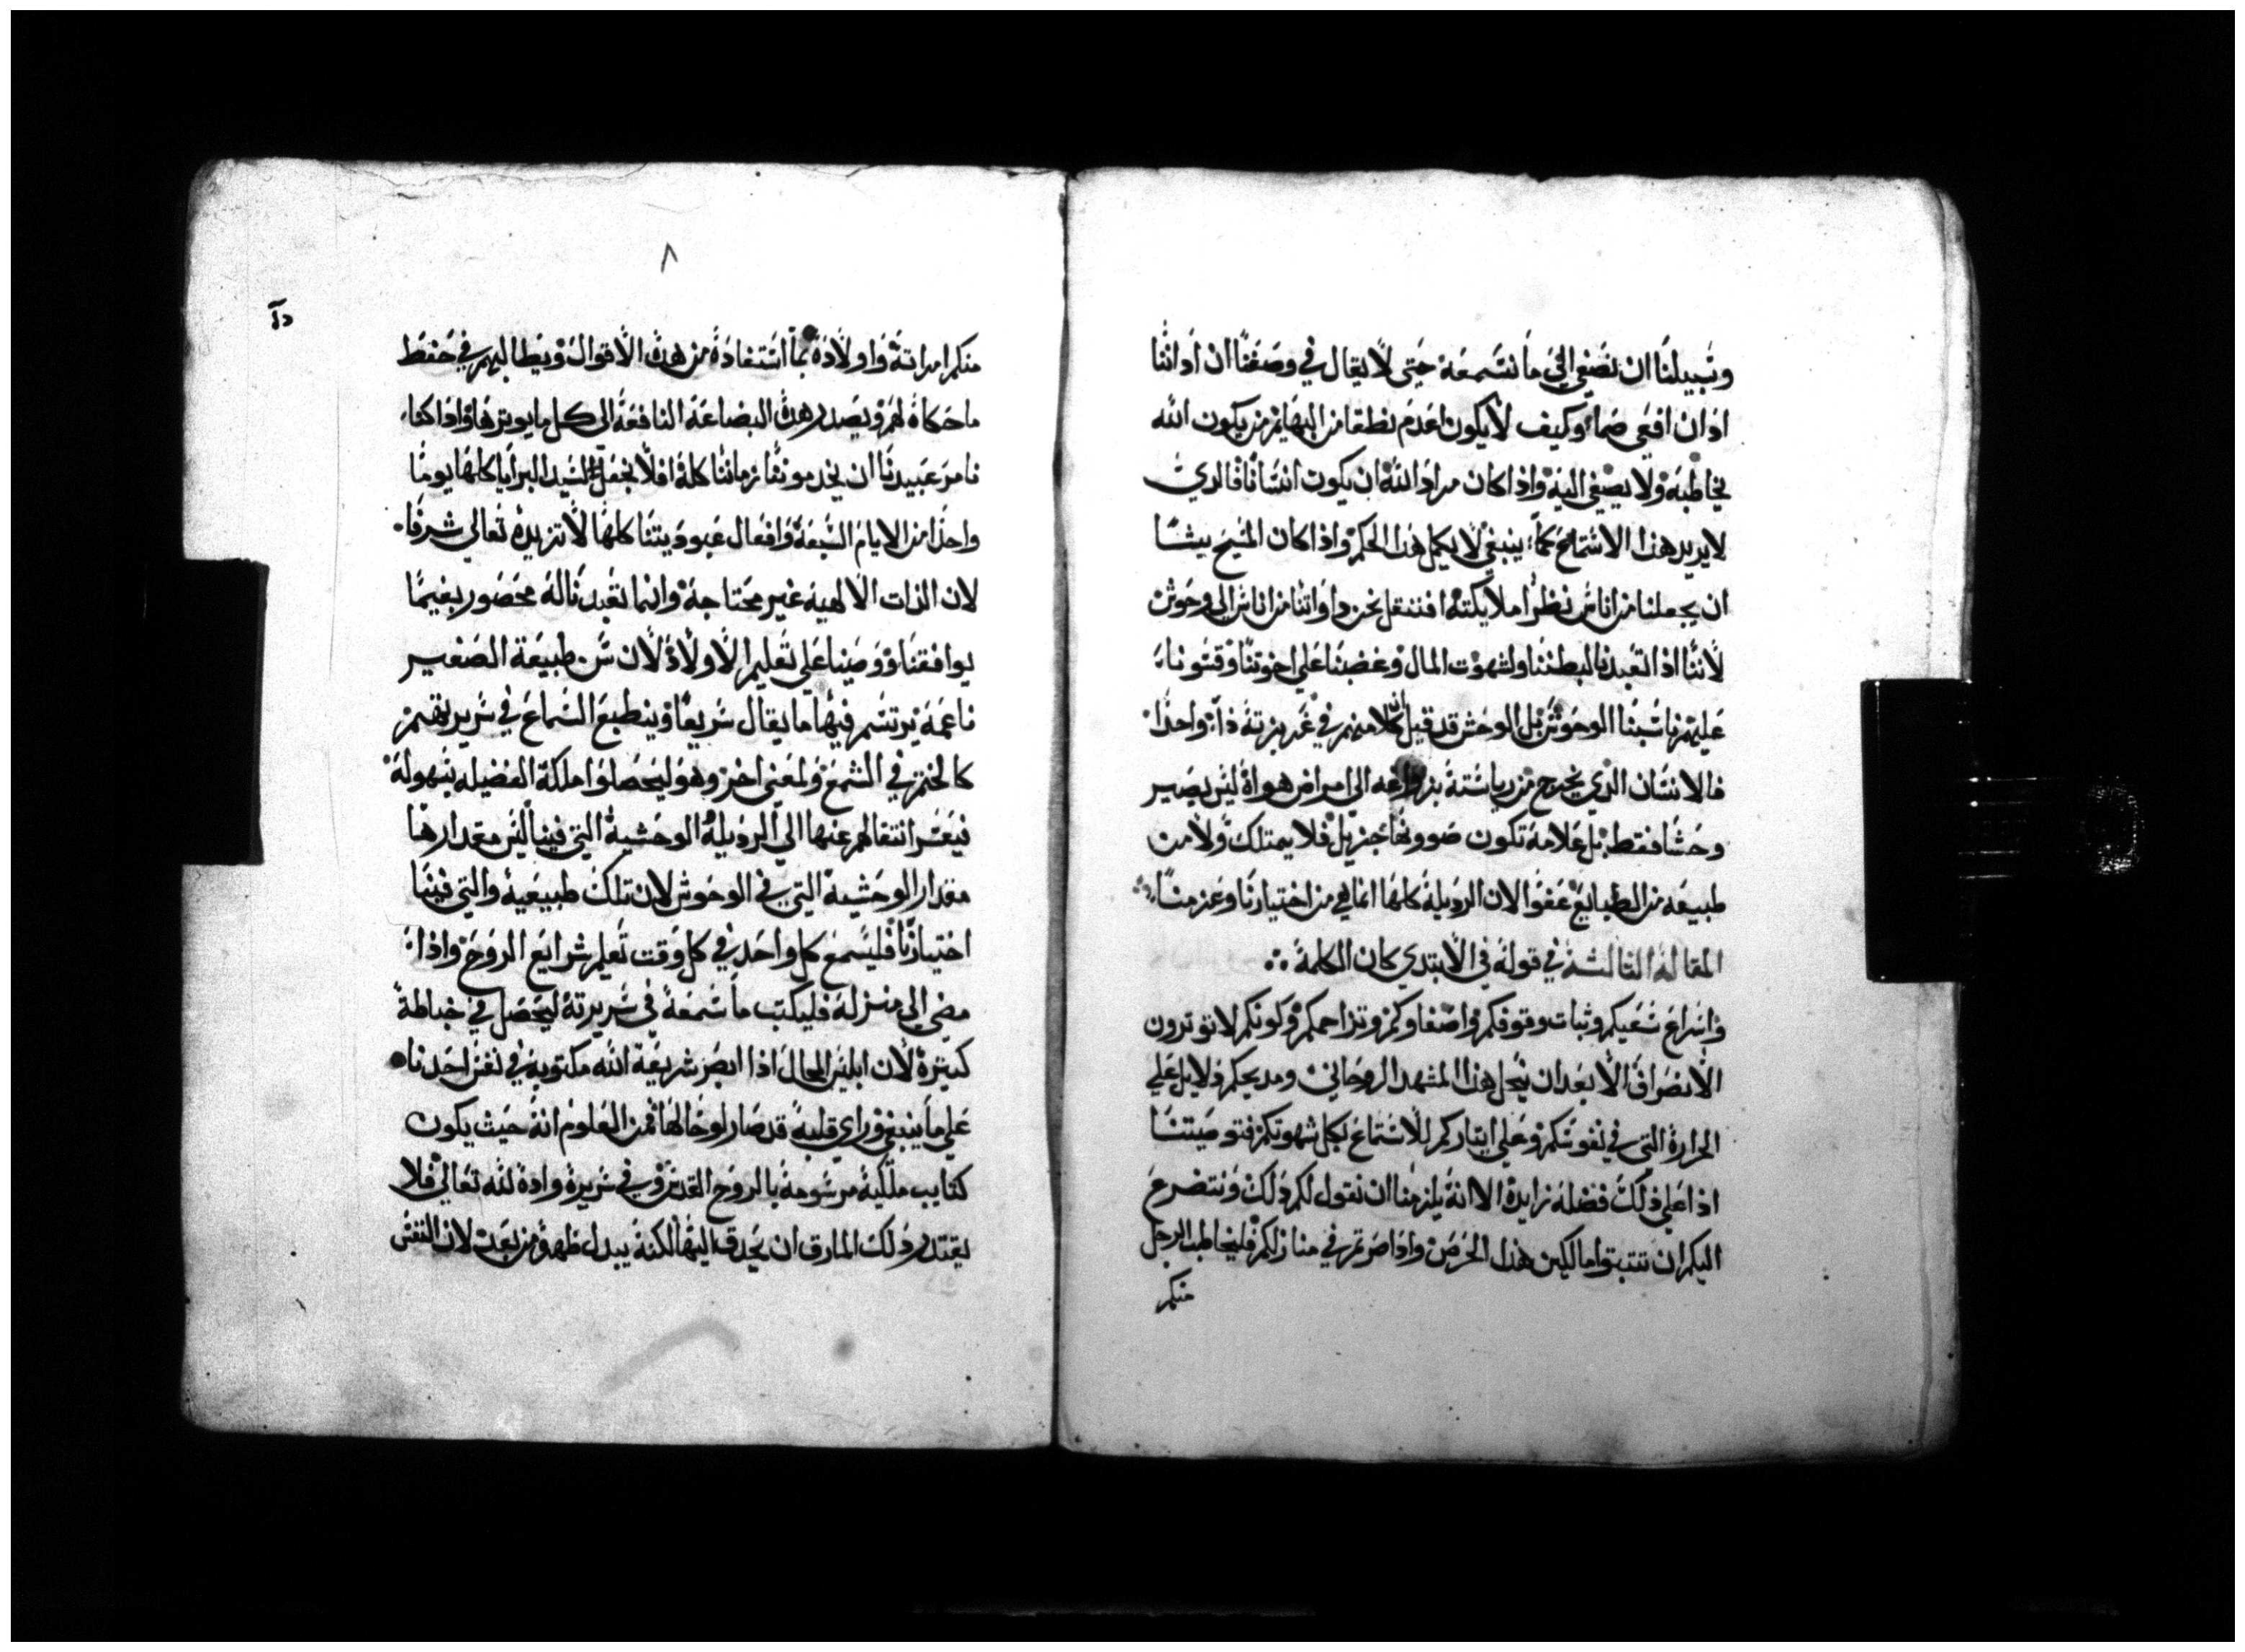 وسبيلنا ان نصغي الي ما نسمعه حتى لا يقال في وصفنا ان اداننا
ادان افعي صما وكيف لا يكون اعدم نطقا من البهايم من يكون الله
يخاطبه ولا يصغي اليه واذا كان مراد الله ان يكون انسانا فالدي
لا يريد هذا الاستماع كما ينبغي لا يكمل هذا الحكم واذا كان المسيح يشا
ان يجعلنا من اناس نظرا ملايكته افننقل نحن دواتنا من اناس الي وحوش
لاننا اذا تعبدنا لبطننا ولشهوت المال وغضبنا علي اخوتنا وقسونا
عليهم ناسبنا الوحوش بل الوحش قد قبل كلا منهم في غريزته دآ واحدا
فالانسان الدي يخرج من رياسته الي امراض هواه ليس يصير
وحشا فقط بل علامة تكون جزيل فلا يمتلك ولا من
طبيعه من الطبايع عفوا لان الرديلة كلها انما هي من اختيارنا وعزمنا
المقالة الثالثة في قوله في الابتدي كان الكلمة
واسراع سعيكم وثبات وقوفكم واصغاوكم وتزاحمكم وكونكم لا توترون
الانصراف الا بعد ان ينحل هذا المشهد الروحاني ومديحكم دلايل علي
الحرارة التي في نفوسكم وعلي ايتاركم للاستماع بكل شهوتكم فتوصيتنا
اذا علي ذلك فضله زايدة الا انه يلزمنا ان نقول لكم ذلك ونتضرع
اليكم ان تتبتوا مالكين هذا الحرص واذا صرتم في منازلكم فليخاطب الرجل
منكم
٨
منكم امراته واولاده بما استفاده من هده الاقوال ويطالبهم في حفظ
ما حكاه لهم ويصدر هده البضاعة النافعة الى كل ما يوترها واذا كنا
نامر عبيدنا ان يخدمونا زماننا كله افلا نجعل السيد البرايا كلها يوما
واحدا من الايام السبعة وافعال عبوديتنا كلها لا تزيده تعالي شرفا
لان الذات الالهية غير محتاجة وانما تعبدنا له محصور فيما
يوافقنا ووصينا علي تعليم الاولاد لان سن طبيعة الصغير
ناعمة يرتسم فيها ما يقال سريعا وينطبع السماع في سريرتهم
كالختم في الشمع ولمعني اخر وهو ليحصلوا ملكة الفضيله بسهولة
فيعسر انتقالهم عنها الي الرديلة الوحشية التي فينا ليس مقدارها
مقدار الوحشية التي في الوحوش لان تلك طبيعية والتي فينا
اختيارنا فليسمع كل واحد في كل وقت تعليم شرايع الروح واذا
مضي الي منزله فليكتب ما سمعه في سريرته ليحصل في خباطة
كتيرة لان ابليس المحال اذا ابصر شريعة الله مكتوبة في نفس احدنا
علي ما ينبغي وراي قلبه قد صار لوحا لها فمن المعلوم انه حيث يكون
كتايب ملكية مرسومة بالروح القدس وفي سريرة واده لله تعالي فلا
يقتدر ذلك المارق ان يحدق اليها لكنه يبدل ظهره من بعد لان النفس